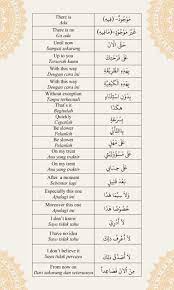 There is
Ada
مَوْجُوْدٌ - (فِيْهِ)
There is no
Ga ada
غَيْرُ مَوْجُوْدٍ - (مَافِيْهِ)
Until now
Sampai sekarang
حَتَّى الْآنَ
Up to you
Terserah kamu
With this way
Dengan cara ini
بِهَذِهِ الطَّرِيْقَةِ
With this way
Dengan cara ini
بِهَذِهِ الْكَيْفِيَّةِ
Without exception
Tanpa terkecuali
بِدُوْنِ اسْتِثْنَاءٍ
That's it
Begitulah
هَكَذَا
Quickly
Cepatlah
بِسُرْعَةٍ
Be slower
Pelanlah
بِالتَّأَنِّي
Be slower
Pelanlah
عَلَى مَهْلٍ
On my treat
Aku yang traktir
On my treat
Aku yang traktir
عَلَى حِسَابِي
After a moment
Sebentar lagi
بَعْدَ قَلِيْلٍ
Especially this one
Apalagi ini
وَلَا سِيَّمَا هَذَا
Moreover this one
Apalagi ini
خُصُوْصًا هَذَا
I don't know
Saya tidak tahu
لَا أَدْرِي
I have no idea
Saya tidak tahu
لَا أَعْرِفُ ذَلِكَ
I don't believe it
Saya tidak percaya
From now on
Dari sekarang dan seterusnya
مِنَ الْآنَ فَصَاعِدًا